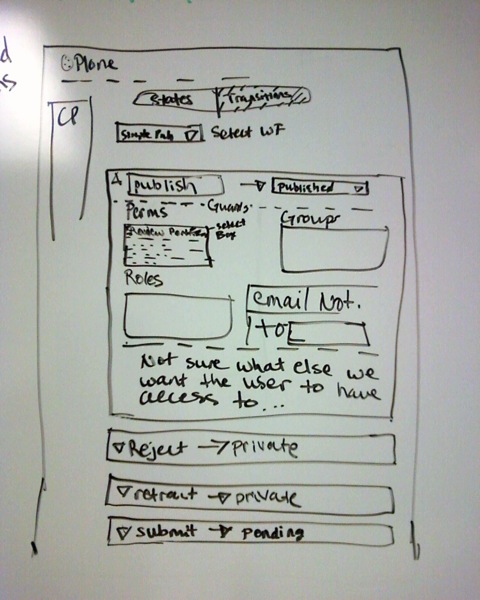 Plone
States Transitions
CP
Simple Pub Select WF
publish → published
Perms Guards Groups
Review Portal select
Box
Roles
email Not.
to
Not sure what else we
want the user to have
access to...
Reject → private
retract → private
submit → pending